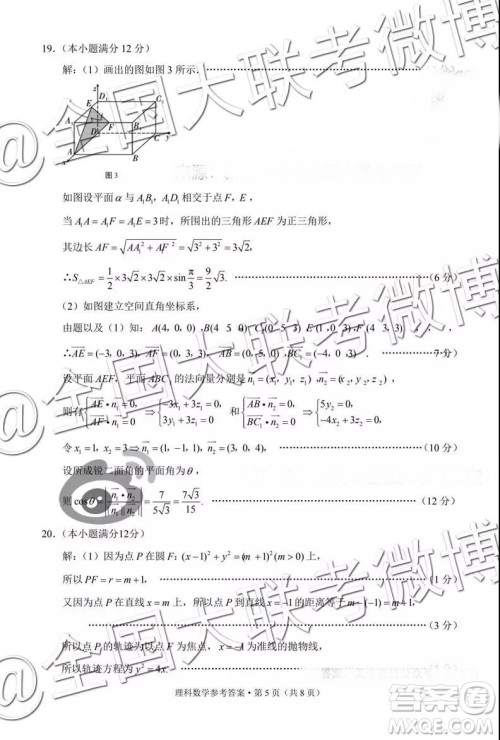 19.（本小题满分 12 分）
解：（1）画出的图如图 3 所示.
图 3
如图设平面 α 与 A₁B₁，A₁D₁ 相交于点 F，E，
当 A₁A = A₁F = A₁E = 3 时，所围出的三角形 AEF 为正三角形，
其边长 AF = √(AA₁² + A₁F²) = √(3² + 3²) = 3√2，
∴S△AEF = 1/2 × 3√2 × 3√2 × sin π/3 = 9/2 √3. （6 分）
（2）如图建立空间直角坐标系，
由题以及（1）知：A(4，0，0)，B(4，5，0)，C₁(0，5，3)，E(1，0，3)，F(4，3，3)
∴AE = (−3，0，3)，AF = (0，3，3)，AB = (0，5，0)，BC₁ = (−4，0，3)． 7 分)
设平面 AEF，平面 ABC₁ 的法向量分别是 n₁ = (x₁，y₁，z₁)，n₂ = (x₂，y₂，z₂)，
则有 { AE•n₁ = 0 AF•n₁ = 0 ⇒ { −3x₁ + 3z₁ = 0 3y₁ + 3z₁ = 0 和 { AB•n₂ = 0 BC₁•n₂ = 0 ⇒ { 5y₂ = 0 −4x₂ + 3z₂ = 0
（10 分）
设所成锐二面角的平面角为 θ，
则 cosθ = |n₁•n₂| / |n₁||n₂| = 7/(5√3) = 7√3/15. （12 分）
20.（本小题满分12分）
解：（1）因为点 P 在圆 F：(x−1)² + y² = (m+1)²(m > 0) 上，
所以 PF = r = m + 1， （1 分）
又因为点 P 在直线 x = m 上，所以点 P 到直线 x = −1 的距离等于 m − (−1) = m + 1，
（3 分）
所以点 P 的轨迹为以点 F 为焦点，x = −1 为准线的抛物线，
所以轨迹方程为 y² = 4x.
理科数学参考答案 • 第 5 页（共 8 页）
@全国大联考微博
@全国大联考微博
答案圈
MXQE.COM